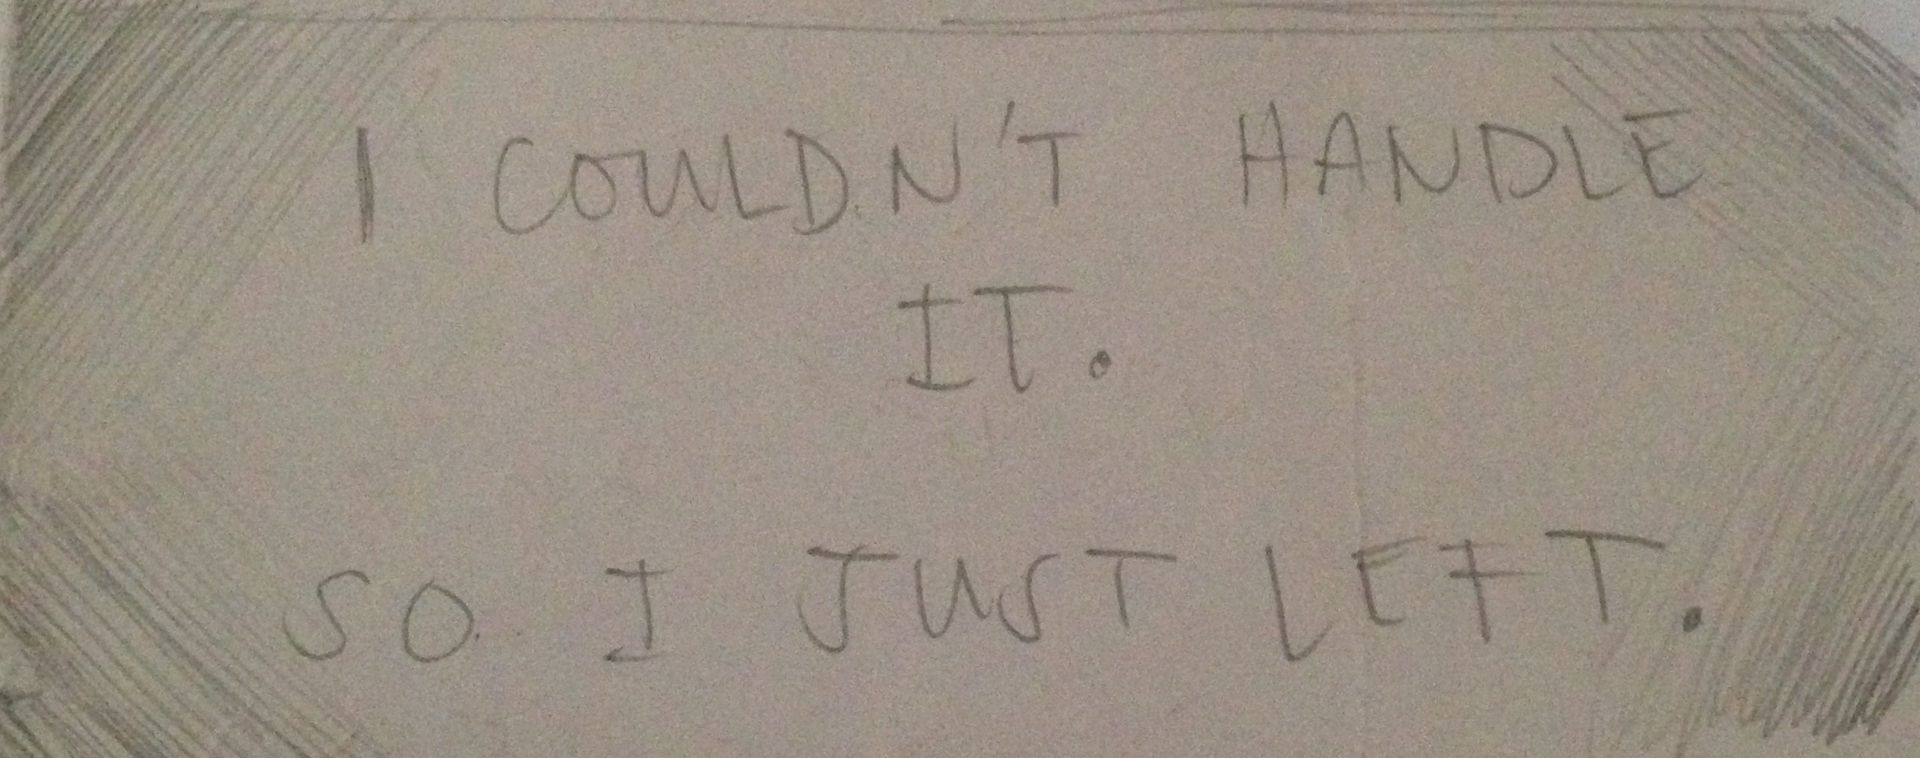 I COULDN'T HANDLE
IT.
SO I JUST LEFT.